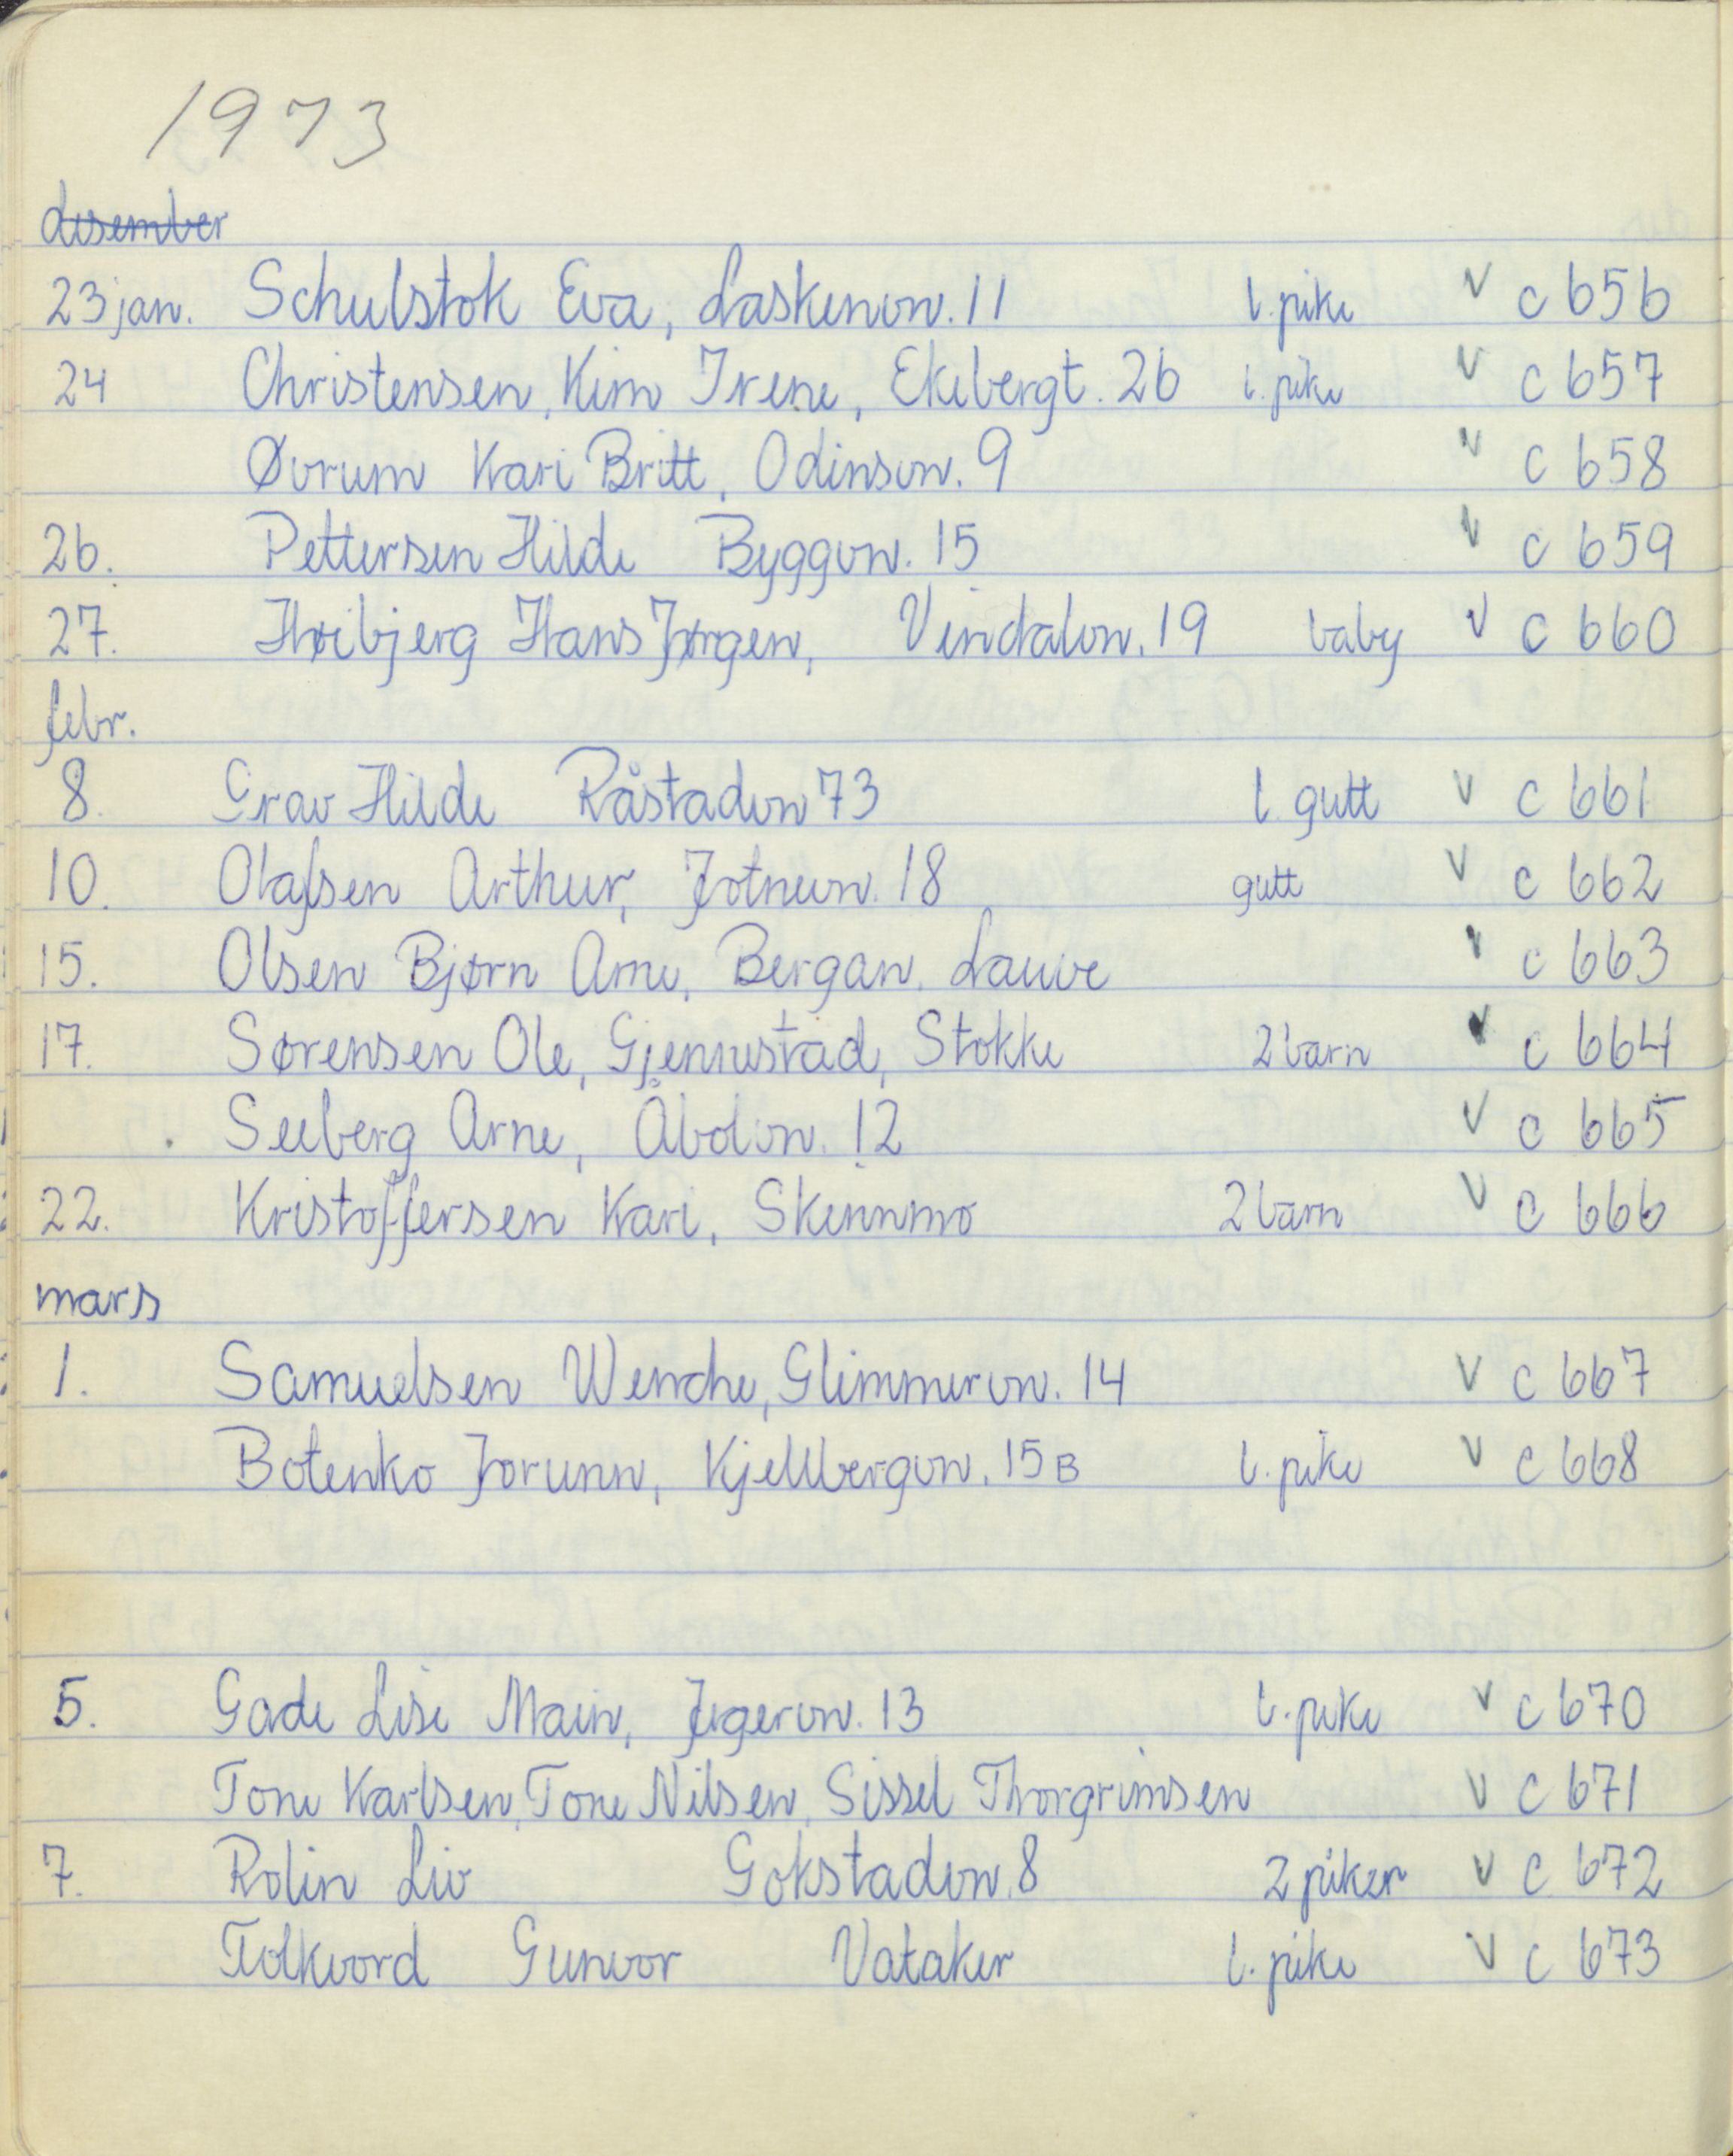 1973
desember
23 jan. Schulstok Eva, Laskenvn. 11 l. pike V c 656
24 Christensen, Kim Irene, Ekebergt. 26 l. pike V c 657
Øvrum Kari Britt, Odinsvn. 9 V c 658
26. Pettersen Hilde Byggvn. 15 V c 659
27. Høibjerg Hans Jørgen, Vindalvn. 19 baby V c 660
febr.
8. Grav Hilde Råstadvn 73 l. gutt V c 661
10. Olafsen Arthur, Jotnevn. 18 gutt V c 662
15. Olsen Bjørn Arne, Bergan, Lauve V c 663
17. Sørensen Ole, Gjennestad, Stokke 2 barn V c 664
Seeberg Arne, Åbolvn. 12 V c 665
22. Kristoffersen Kari, Skennmo 2 barn V c 666
mars
1. Samuelsen Wenche, Glimmervn. 14 V c 667
Botenko Jorunn, Kjellbergvn. 15 B l. pike V c 668
5. Gade Lise Main, Jegervn. 13 l. pike V c 670
Tone Karlsen, Tone Nilsen, Sissel Thorgrimsen V c 671
7. Rolin Liv Gokstadvn. 8 2 piker V c 672
Folkvord Gunvor Vataker l. pike V c 673